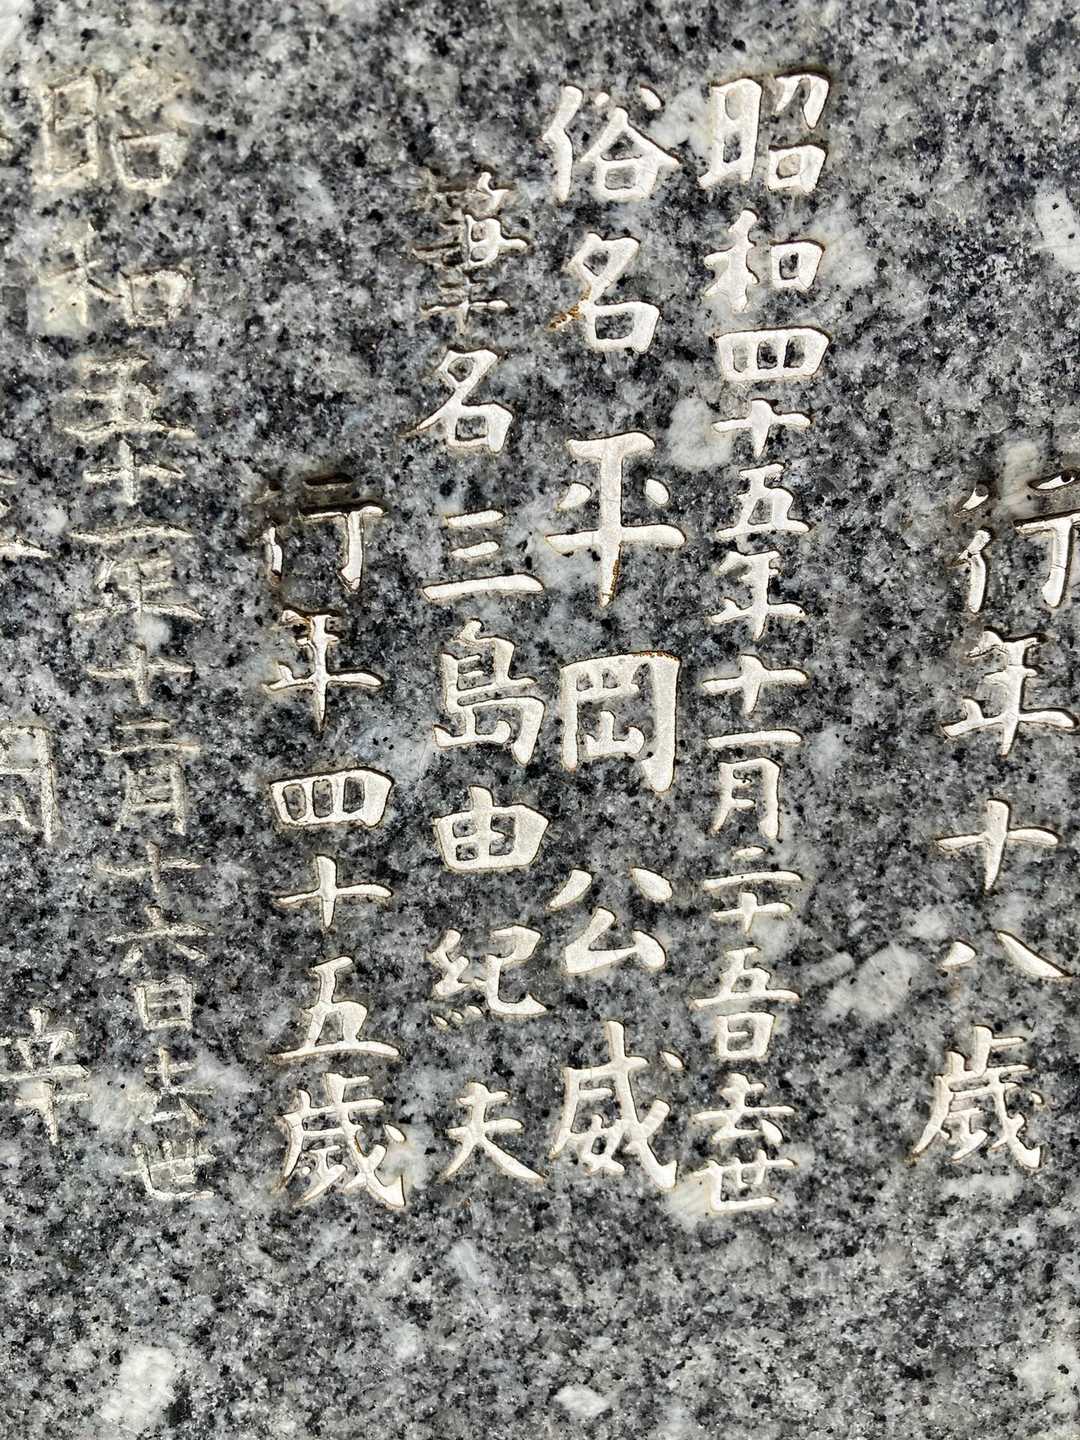 行年十八歳
昭和四十五年十一月二十五日去世
俗名 平岡公威
筆名 三島由紀夫
行年四十五歳
昭和五十一年十二月十六日去世
岡 梓